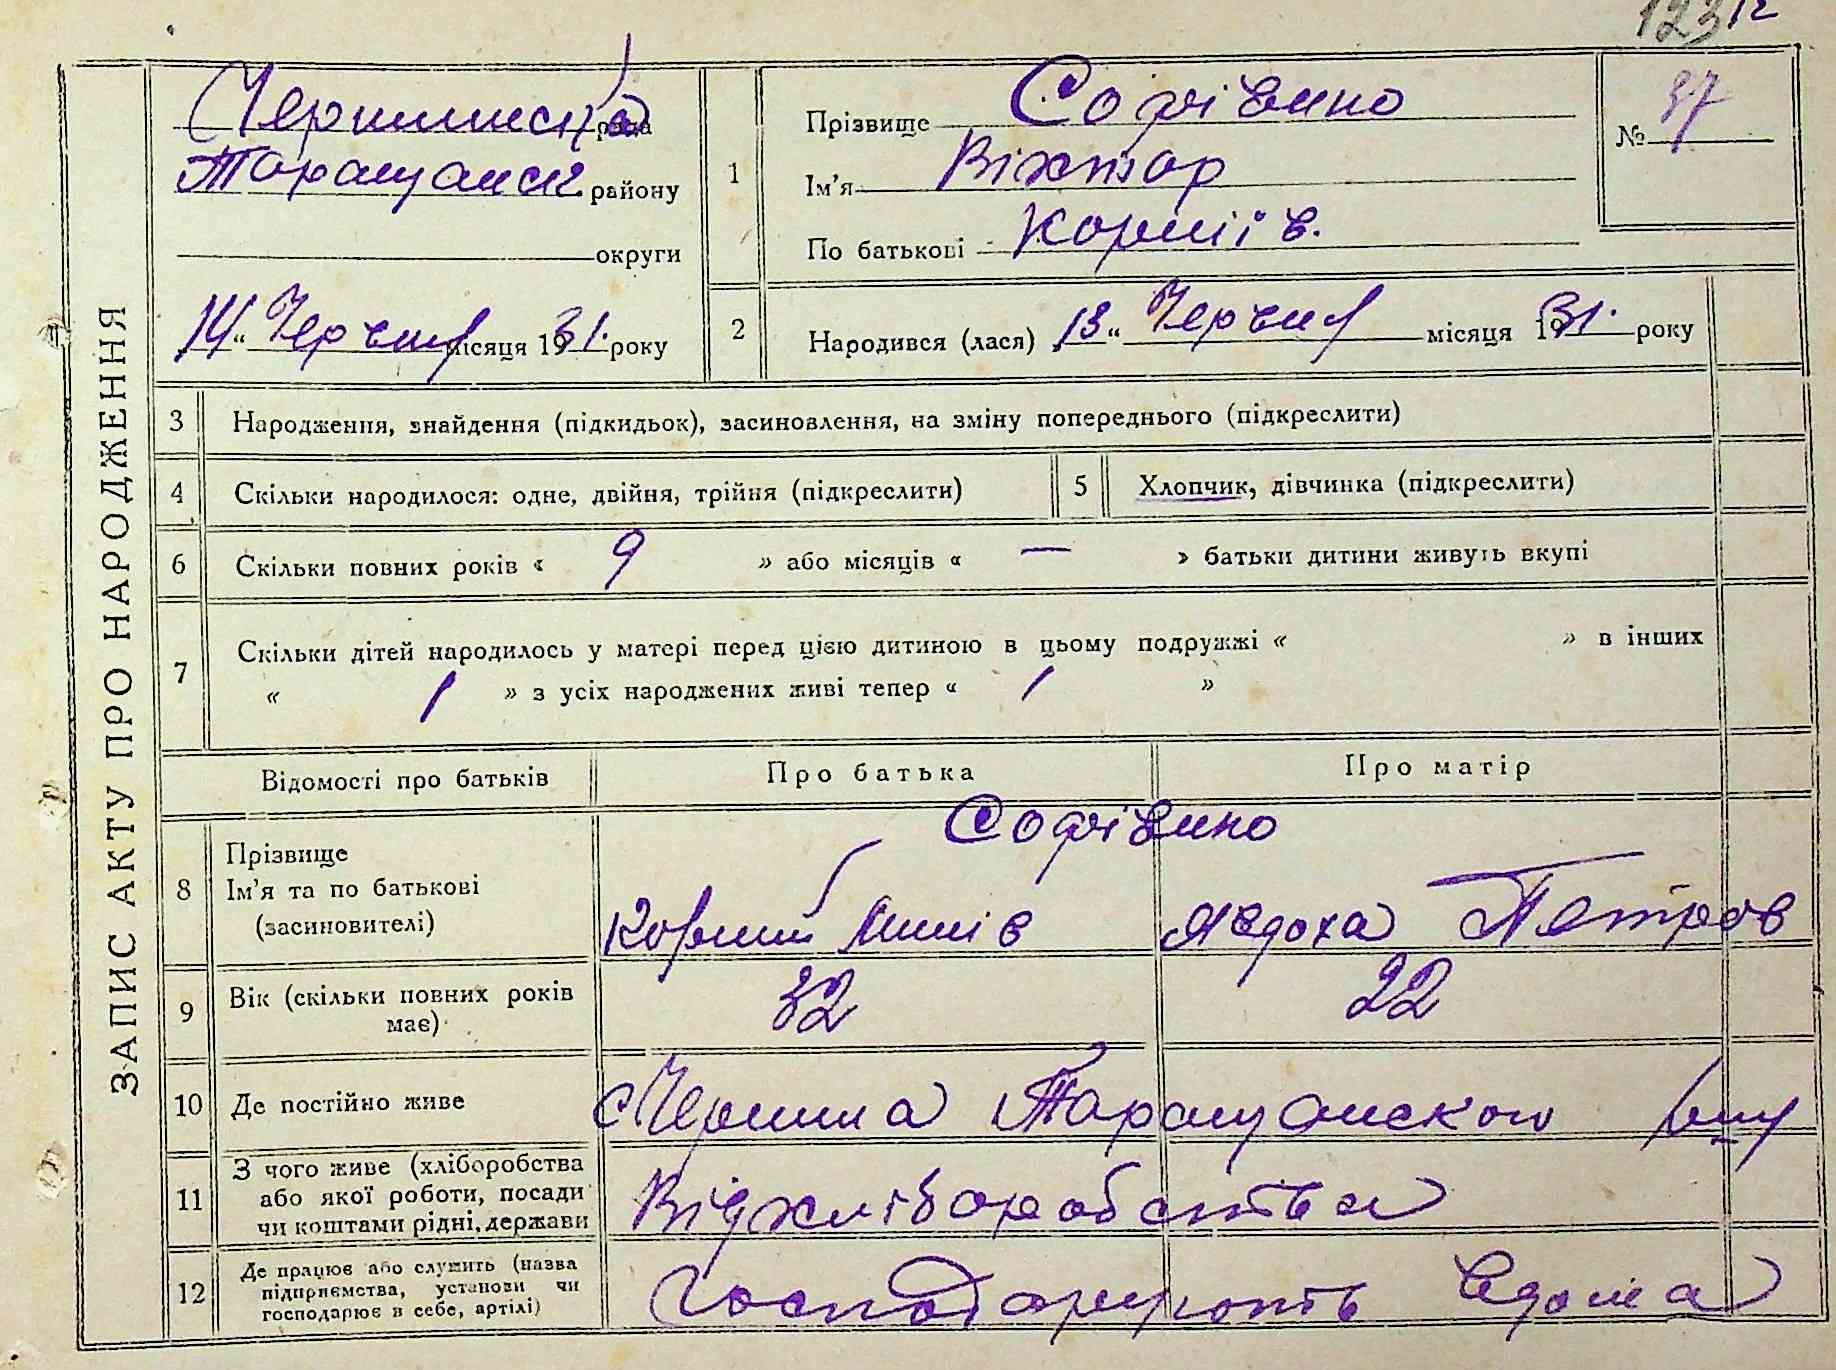 123 12
Чернинська рада
Таращанськ району
округи
14 " Червня місяця 1931. року
1
Прізвище Софієнко
Ім'я Віктор
По батькові Корнiїв.
№ 37
2
Народився (лася) 13 " Червня місяця 1931. року
ЗАПИС АКТУ ПРО НАРОДЖЕННЯ
3 Народження, знайдення (підкидьок), засиновлення, на зміну попереднього (підкреслити)
4 Скільки народилося: одне, двійня, трійня (підкреслити)
5 Хлопчик, дівчинка (підкреслити)
6 Скільки повних років « 9 » або місяців « — » батьки дитини живуть вкупі
7 Скільки дітей народилось у матері перед цією дитиною в цьому подружжі « » в інших
« 1 » з усіх народжених живі тепер « 1 »
Відомості про батьків Про батька Про матір
8 Прізвище
Ім'я та по батькові
(засиновителі)
Софієнко
Корній Минів Явдоха Петров
9 Вік (скільки повних років
має)
32 22
10 Де постійно живе с Чернина Таращанского р-ну
11 З чого живе (хліборобства
або якої роботи, посади
чи коштами рідні, держави
Від хліборобства
12 Де працює або служить (назва
підприємства, установи чи
господарює в себе, артілі)
Господарюють вдома